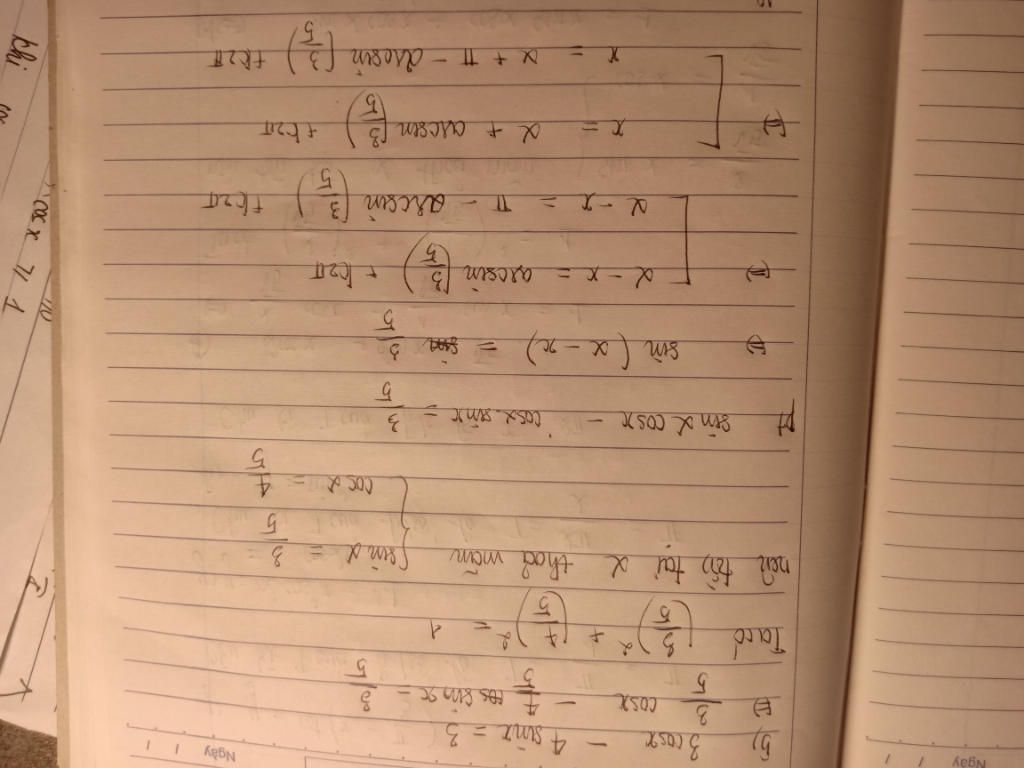 Ngày
b) 3 cosx - 4 sinx = 3
⇔ 3/5 cosx - 4/5 sinx = 3/5
Ta có (3/5)² + (4/5)² = 1
nên tồn tại α thoả mãn { sin α = 3/5
cos α = 4/5
pt sin α cosx - cos α sinx = 3/5
⇔ sin (α - x) = 3/5
⇔ [ α - x = arcsin (3/5) + k2π
α - x = π - arcsin (3/5) + k2π
⇔ [ x = α + arcsin (3/5) + k2π
x = α + π - arcsin (3/5) + k2π
Ngày
khi
cosx ≥ 1